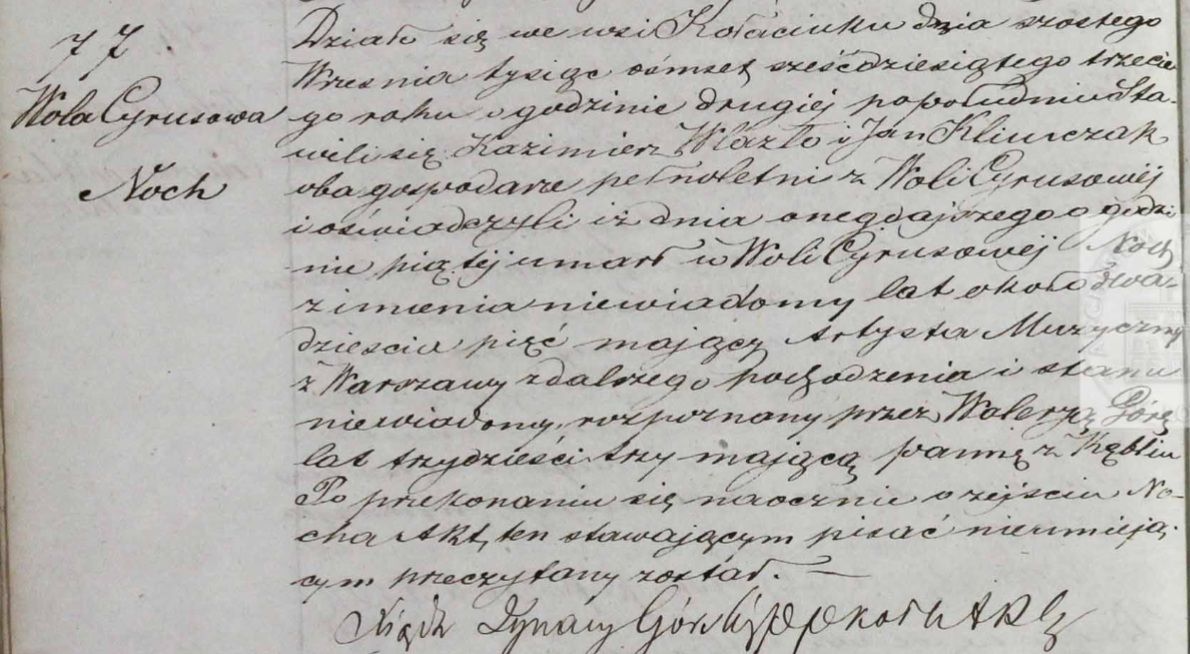 77.
Wola Cyrusowa
Noch
Działo się we wsi Kołaciuku dnia szostego
Wresnia tysiąc ośmset sześćdziesiątego trzecie
go roku o godzinie drugiej popołudniu Sta-
wili się Kazimierz Wlazło i Jan Klimczak
oba gospodarze pełnoletni z Woli Cyrusowej
i oświadczyli iż dnia onegdajszego o godzi
nie piątej umarł w Woli Cyrusowej Noch
z imienia niewiadomy lat około dwa-
dziescia pięć mający Artysta Muzyczny
z Warszawy z dalszego pochodzenia i stanu
niewiadomy, rozpoznany przez Waleryą Górę
lat trzydzieści trzy mającą pannę z
Po przekonaniu się naocznie o zejsciu No-
cha Akt ten stawającym pisać nieumieją-
cym przeczytany został.
Xiądz Ignacy